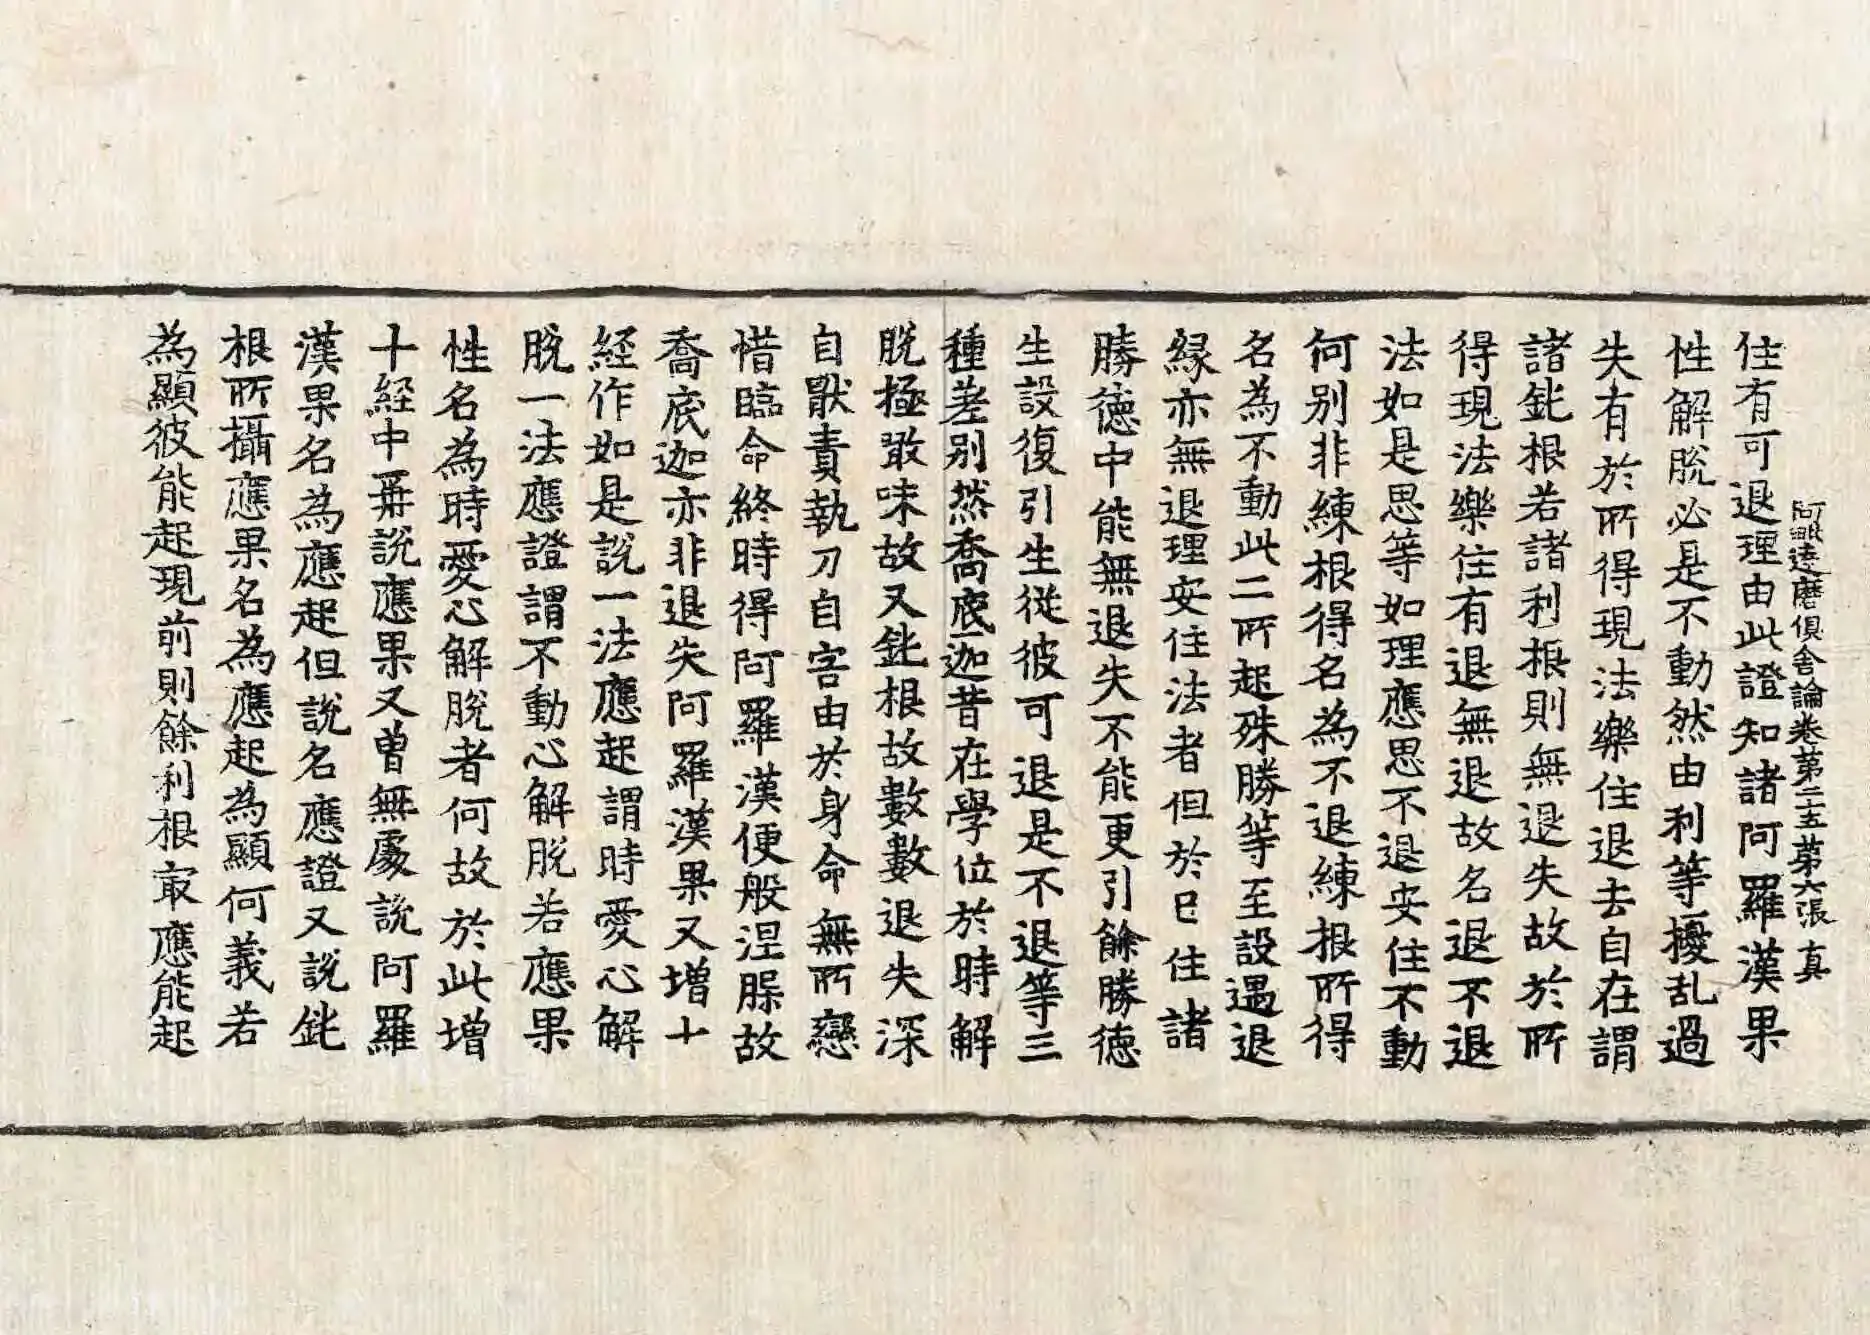 阿毗達磨俱舍論卷第二十五 第六張 真
住有可退理由此證知諸阿羅漢果
性解脫必是不動然由利等擾乱過
失有於所得現法樂住退去自在謂
諸鈍根若諸利根則無退失故於所
得現法樂住有退無退故名退不退
法如是思等如理應思不退安住不動
何別非練根得名為不退練根所得
名為不動此二所起殊勝等至設遇退
緣亦無退理安住法者但於已住諸
勝德中能無退失不能更引餘勝德
生設復引生從彼可退是不退等三
種差別然喬底迦昔在學位於時解
脫極敢味故又鈍根故數數退失深
自猒責執刀自害由於身命無所戀
惜臨命終時得阿羅漢便般涅槃故
喬底迦亦非退失阿羅漢果又增十
經作如是說一法應起謂時愛心解
脫一法應證謂不動心解脫若應果
性名為時愛心解脫者何故於此增
十經中再說應果又曾無處說阿羅
漢果名為應起但說名應證又說鈍
根所攝應果名為應起為顯何義若
為顯彼能起現前則餘利根㝡應能起